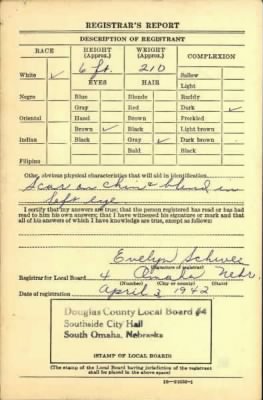 REGISTRAR'S REPORT
DESCRIPTION OF REGISTRANT
RACE HEIGHT (Approx.) WEIGHT (Approx.) COMPLEXION
White ✓ 6 ft. 210 Sallow
EYES HAIR Light
Negro Blue Blonde Ruddy
Gray Red Dark ✓
Oriental Hazel Brown Freckled
Brown ✓ Black Light brown
Indian Black Gray ✓ Dark brown
Bald Black
Filipino
Other obvious physical characteristics that will aid in identification
Scar on chin & blind in
left eye
I certify that my answers are true; that the person registered has read or has had
read to him his own answers; that I have witnessed his signature or mark and that
all of his answers of which I have knowledge are true, except as follows:
Evelyn
(Signature of registrar)
Registrar for Local Board 4 Omaha Nebr.
(Number) (City or county) (State)
Date of registration April 2, 1942
Douglas County Local Board #4
Southside City Hall
South Omaha, Nebraska
(STAMP OF LOCAL BOARD)
(The stamp of the Local Board having jurisdiction of the registrant
shall be placed in the above space)